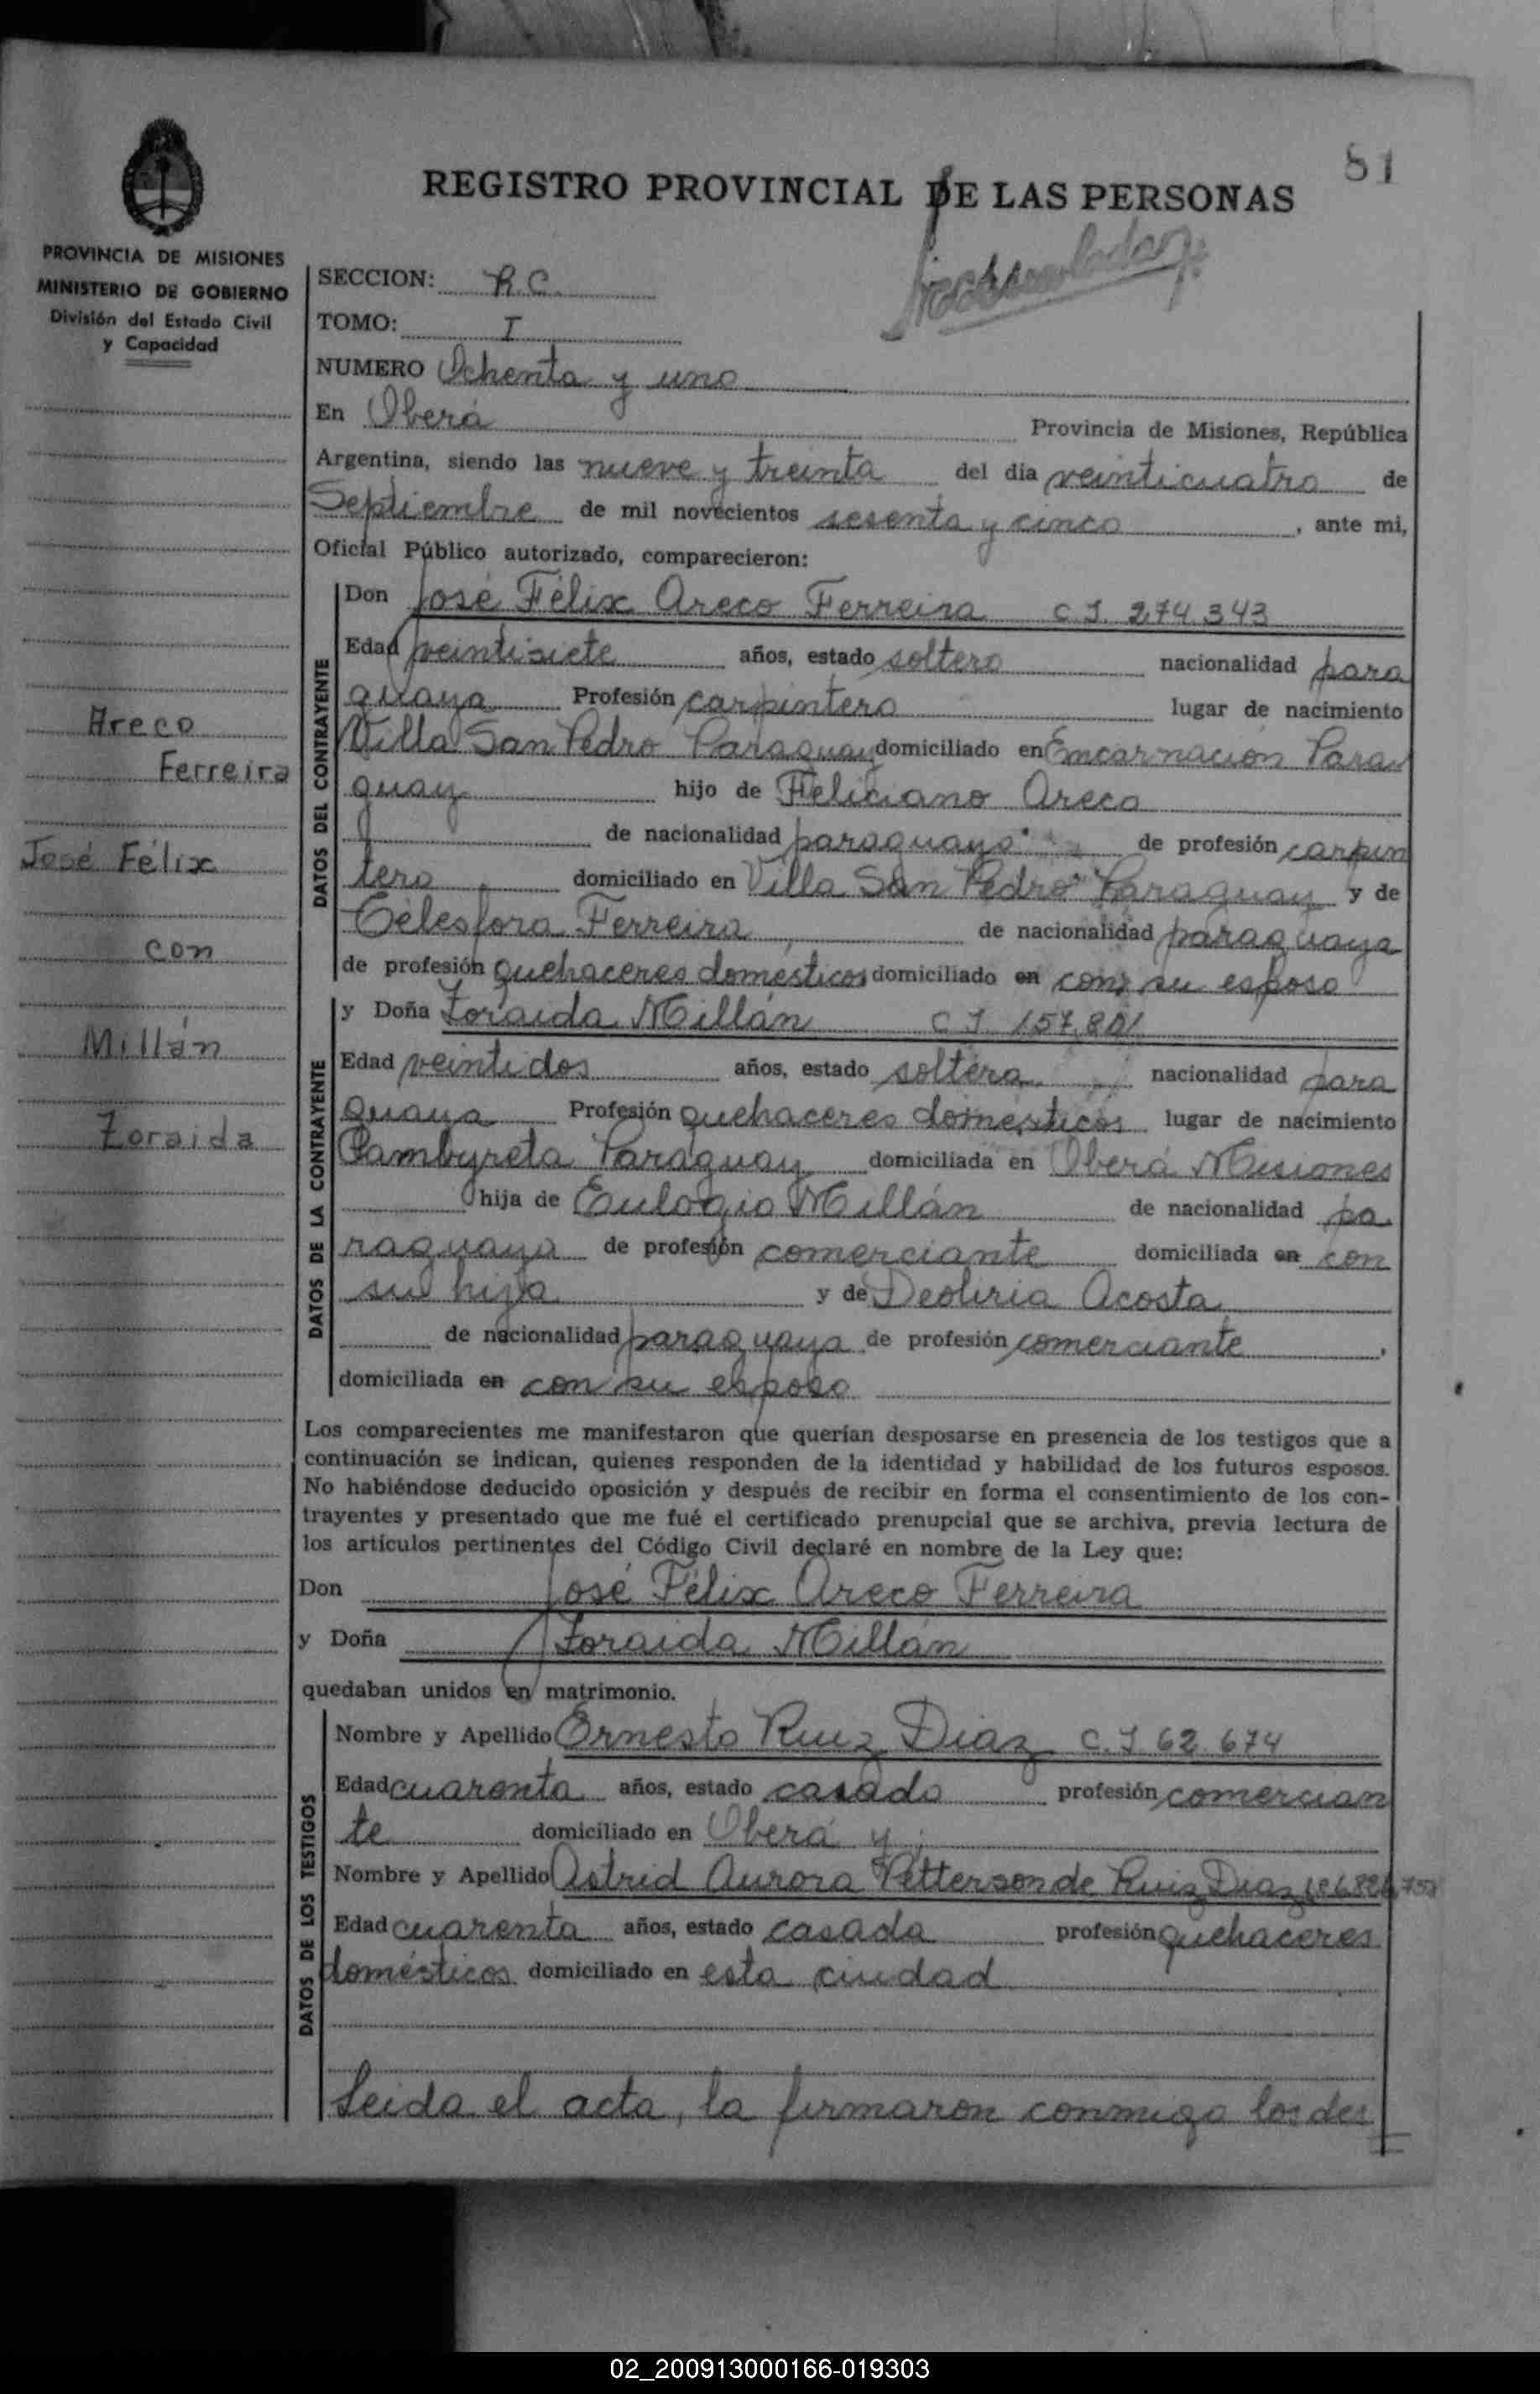 81
REGISTRO PROVINCIAL DE LAS PERSONAS
PROVINCIA DE MISIONES
MINISTERIO DE GOBIERNO
División del Estado Civil
y Capacidad
SECCION: R.C.
TOMO: I
NUMERO Ochenta y uno
En Oberá Provincia de Misiones, República
Argentina, siendo las nueve y treinta del día veinticuatro de
Septiembre de mil novecientos sesenta y cinco, ante mi,
Oficial Público autorizado, comparecieron:
Areco
Ferreira
José Félix
con
Millán
Zoraida
DATOS DEL CONTRAYENTE
Don José Félix Areco Ferreira C I 274.343
Edad veintisiete años, estado soltero nacionalidad para
guaya Profesión carpintero lugar de nacimiento
Villa San Pedro Paraguay domiciliado en Encarnación Para
guay hijo de Feliciano Areco
de nacionalidad paraguaya de profesión carpin
tero domiciliado en Villa San Pedro Paraguay y de
Celesfora Ferreira de nacionalidad paraguaya
de profesión quehaceres domésticos domiciliado en con su esposo
DATOS DE LA CONTRAYENTE
y Doña Zoraida Millán C I 157.801
Edad veintidos años, estado soltera nacionalidad para
guaya Profesión quehaceres domésticos lugar de nacimiento
Cambyreta Paraguay domiciliada en Oberá Misiones
hija de Eulogio Millán de nacionalidad pa
raguaya de profesión comerciante domiciliada en con
su hija y de Deoliria Acosta
de nacionalidad paraguaya de profesión comerciante,
domiciliada en con su esposo
Los comparecientes me manifestaron que querían desposarse en presencia de los testigos que a
continuación se indican, quienes responden de la identidad y habilidad de los futuros esposos.
No habiéndose deducido oposición y después de recibir en forma el consentimiento de los con-
trayentes y presentado que me fué el certificado prenupcial que se archiva, previa lectura de
los artículos pertinentes del Código Civil declaré en nombre de la Ley que:
Don José Félix Areco Ferreira
y Doña Zoraida Millán
quedaban unidos en matrimonio.
DATOS DE LOS TESTIGOS
Nombre y Apellido Ernesto Ruiz Diaz C.I 62.674
Edad cuarenta años, estado casado profesión comercian
te domiciliado en Oberá y
Nombre y Apellido Astrid Aurora Petterson de Ruiz Diaz
Edad cuarenta años, estado casada profesión quehaceres
domésticos domiciliado en esta ciudad
Leida el acta, la firmaron conmigo los des
02_200913000166-019303